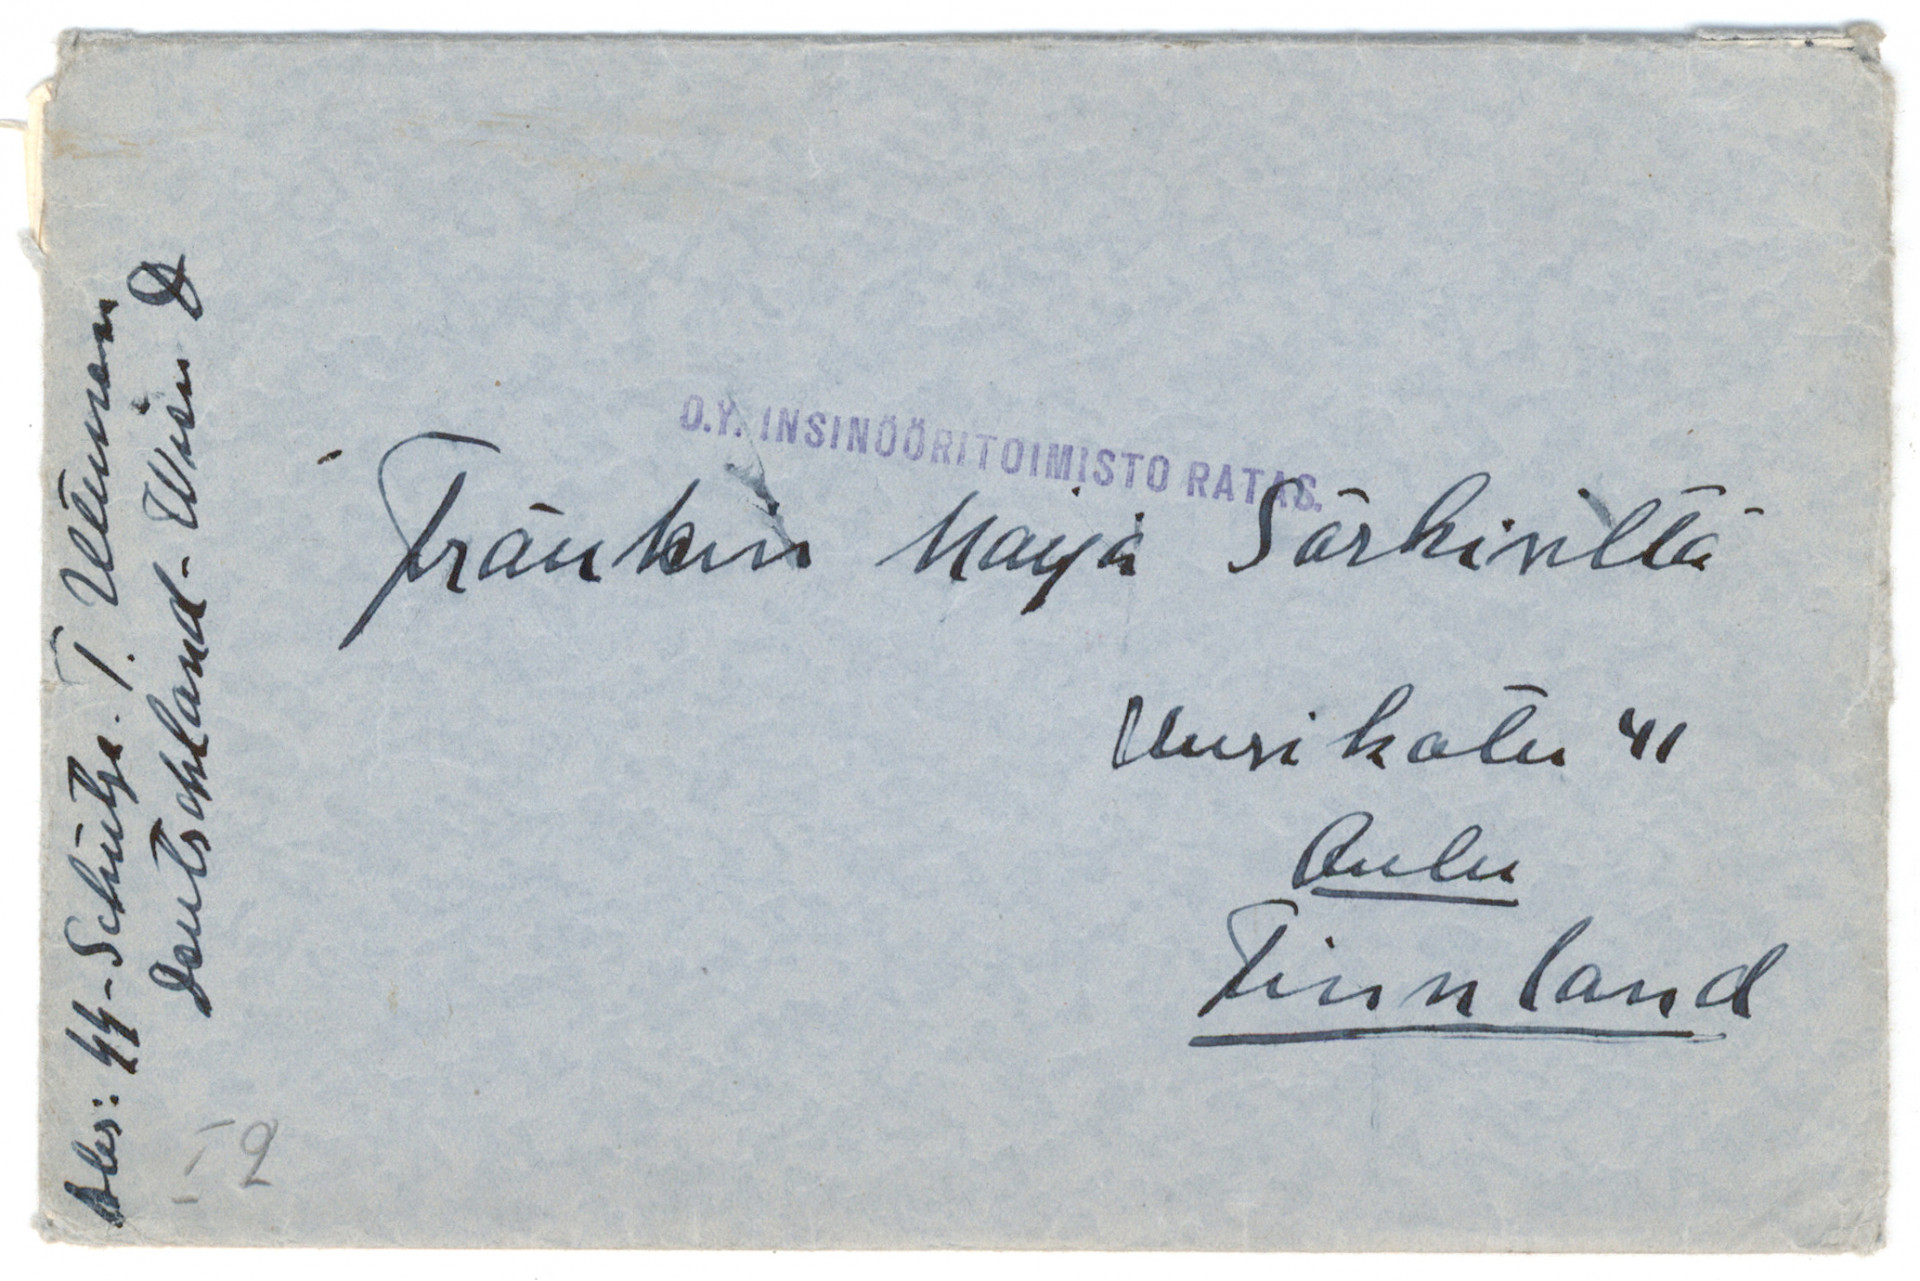 O.Y. INSINÖÖRITOIMISTO RATAS.
Fräulein Maija Särkiviltä
Uusikatu 41
Oulu
Finnland
Abs: SS-Schütze. T. Ullman
Deutschland-Wien